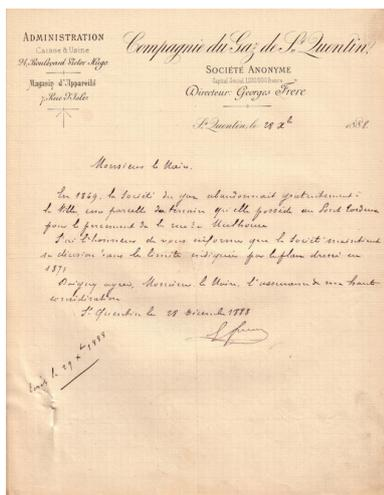 ADMINISTRATION
Caisse & Usine
21, Boulevard Victor Hugo
Magasin d'Appareils
7, Rue d'Isle
Compagnie du Gaz de St Quentin
SOCIÉTÉ ANONYME
Capital Social 1,200,000 francs
Directeur: Georges Frere
St Quentin, le 28 Xbre 1888
Monsieur le Maire,
En 1869, la Société du gaz abandonnait gratuitement à
la Ville, une parcelle de terrain qu'elle possède au
pour le percement de la rue de Mulhouse
J'ai l'honneur de vous informer que la Société maintient
sa décision dans la limite indiquée par le plan dressé en
1871
Daignez agréer, Monsieur le Maire, l'assurance de ma haute
considération
St Quentin le 28 Décembre 1888
G Frere
29 Xbre 1888